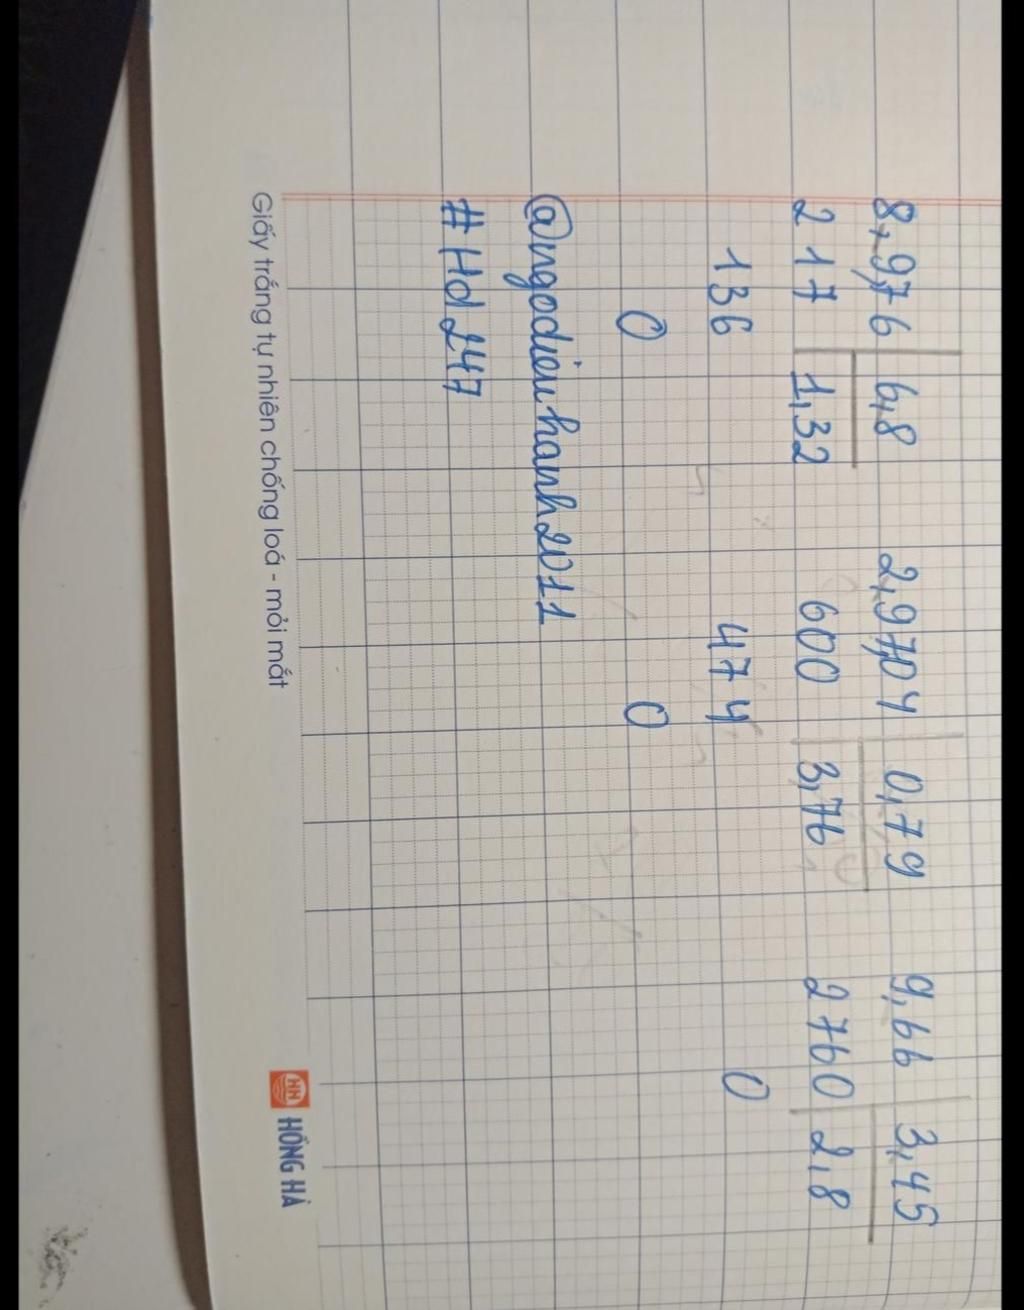 8,9,76 6,8 2,97,04 0,79 9,66 3,45
217 1,32 600 3,76 2760 2,8
136 474 0
0 0
@ngodieuhanh2011
#Hd247
Giấy trắng tự nhiên chống loá - mỏi mắt HH HỒNG HÀ